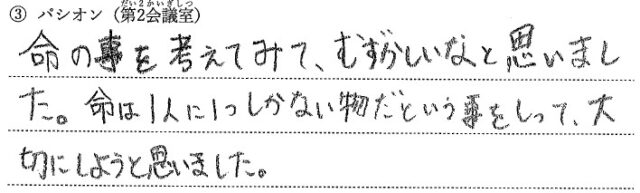 ③ パシオン（第2会議室）
命の事を考えてみて、むずかしいなと思いまし
た。命は1人に1つしかない物だという事をしって、大
切にしようと思いました。